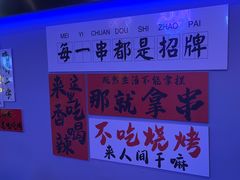 MEI YI CHUAN DOU SHI ZHAO PAI
每一串都是招牌
来这吃喝香辣
既然生活不能掌握
那就拿串
不吃烧烤
来人间干嘛